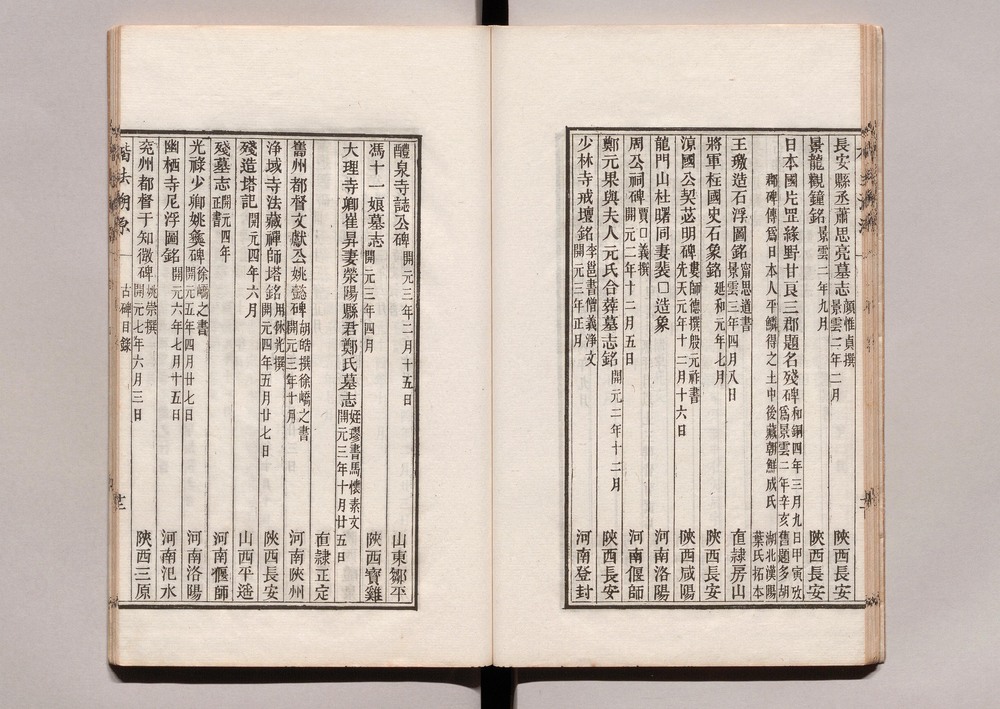 長安縣丞蕭思亮墓志 顏惟貞撰 景雲二年二月 陝西長安
景龍觀鐘銘 景雲二年九月 陝西長安
日本國片罡緑野甘良三郡題名殘碑 和銅四年三月九日甲寅攷爲景雲二年辛亥舊題多胡
郡碑傳爲日本人平鱗得之土中後藏朝鮮成氏 湖北漢陽葉氏拓本
王璥造石浮圖銘 甯思道書 景雲三年四月八日 直隸房山
將軍柱國史石象銘 延和元年七月 陝西長安
涼國公契苾明碑 婁師德撰殷元祚書 先天元年十二月十六日 陝西咸陽
龍門山杜曙同妻裴囗造象 河南洛陽
周公祠碑 賈囗義撰 開元二年十二月五日 河南偃師
鄭元果與夫人元氏合葬墓志銘 開元二年十二月 陝西長安
少林寺戒壇銘 李邕書僧義淨文 開元三年正月 河南登封
醴泉寺誌公碑 開元三年二月十五日 山東鄒平
馮十一娘墓志 開元三年四月 陝西寶雞
大理寺卿崔昇妻滎陽縣君鄭氏墓志 姪璆書馬懷素文 開元三年十月廿五日
直隸正定
巂州都督文獻公姚懿碑 胡皓撰徐嶠之書 開元三年十月 河南陝州
淨域寺法藏禪師塔銘 田休光撰 開元四年五月廿七日 陝西長安
殘造塔記 開元四年六月 山西平遥
殘墓志 開元四年 正書 河南偃師
光祿少卿姚彝碑 徐嶠之書 開元五年四月廿七日 河南洛陽
幽栖寺尼浮圖銘 開元六年七月十五日 河南汜水
兖州都督于知微碑 姚崇撰 開元七年六月三日 陝西三原
楷法溯源 古碑目錄